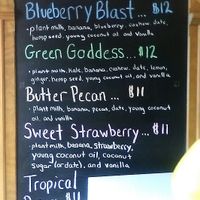 Blueberry Blast... $12
• plant milk, banana, blueberry, cashew, date,
hemp seed, young coconut oil, and vanilla
Green Goddess... $12
• plant milk, kale, banana, cashew, date, lemon,
ginger, hemp seed, young coconut oil, and vanilla
Butter Pecan... $11
• plant milk, banana, pecan, date, young coconut
oil, and vanilla
Sweet Strawberry... $11
• plant milk, banana, strawberry,
young coconut oil, coconut
sugar (or date), and vanilla
Tropical
$11